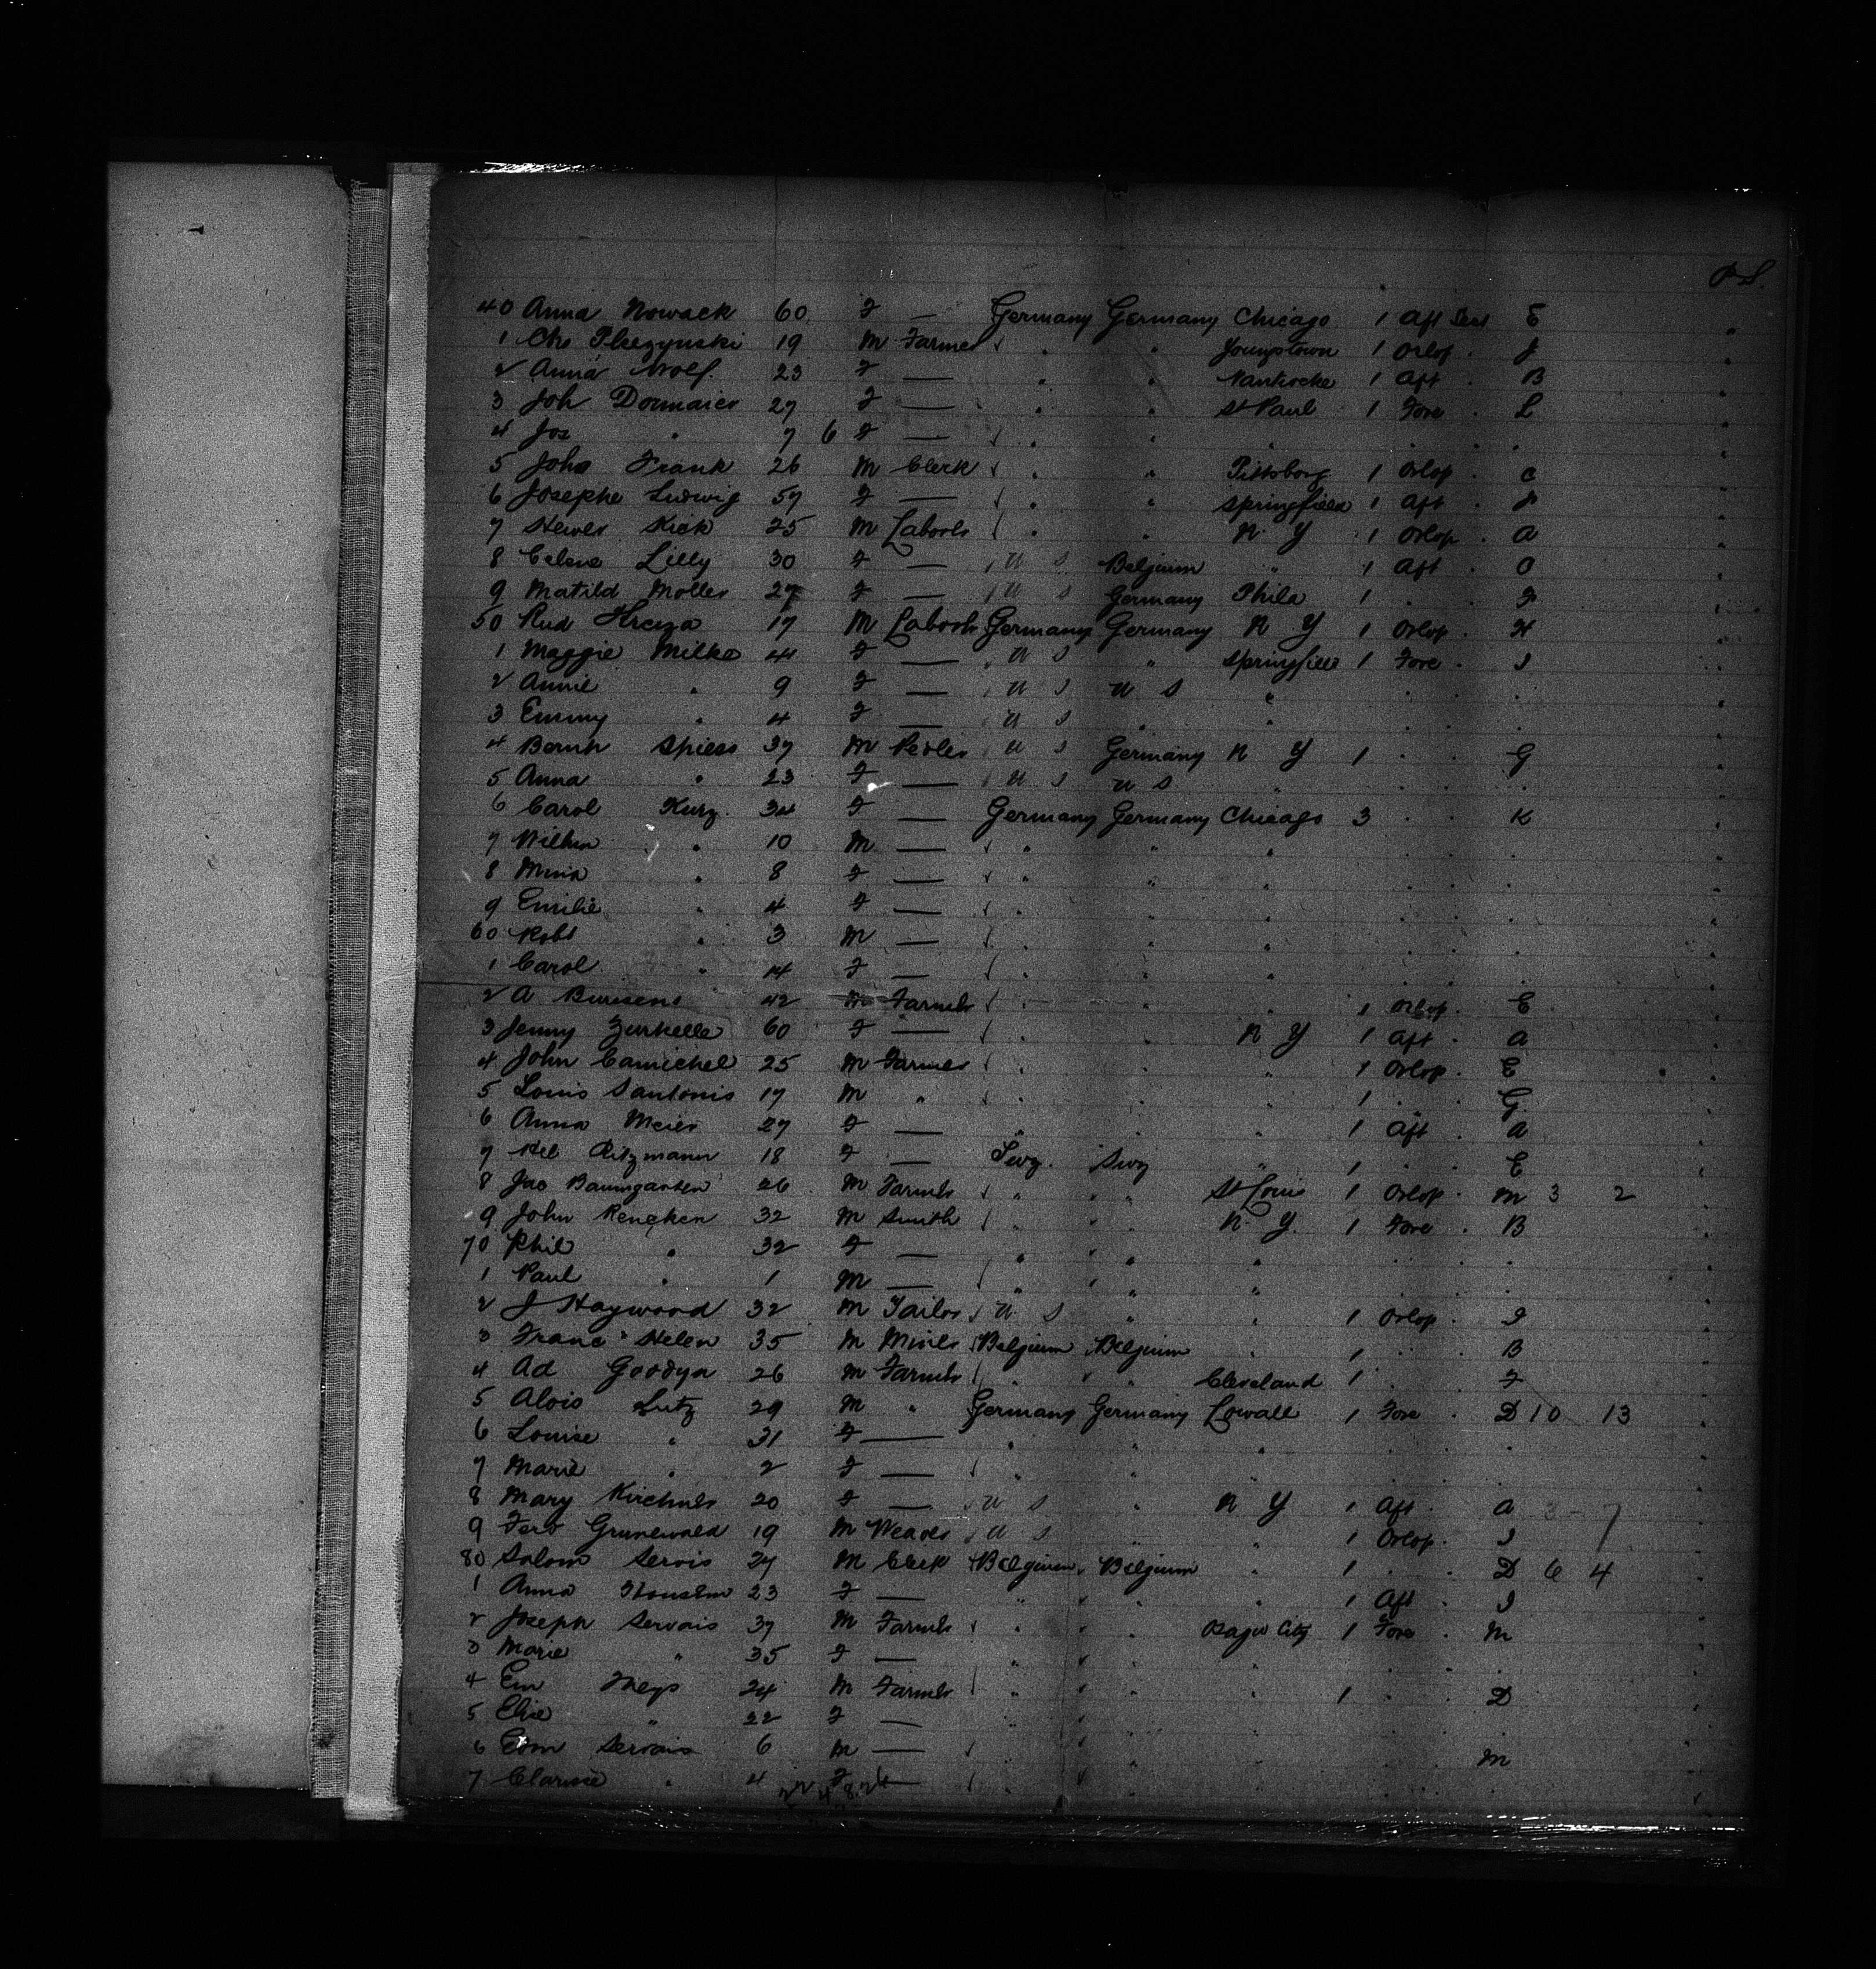 P S.
40 Anna Nowack 60 F — Germany Germany Chicago 1 Aft Deck E
1 Chs 19 M Farmer " " Youngstown 1 Orlop . J
2 Anna Wolf. 23 F — " " Nanticoke 1 Aft . B
3 Joh Dormaier 27 F — " " St Paul 1 Fore . L
4 Jos " 7 6 F — " "
5 John Frank 26 M Clerk " " Pittsborg 1 Orlop . C
6 Josephe Ludwig 57 F — " " Springfield 1 Aft .
7 Kick 25 M Laborer " " N Y 1 Orlop . A
8 Celene Lilly 30 F — U S Belgium " 1 Aft . O
9 Matild Moller 27 F — U S Germany Phila 1 . . F
50 Rud 17 M Laborer Germany Germany N Y 1 Orlop . H
1 Maggie Milke 41 F — U S " Springfield 1 Fore . I
2 Annie " 9 F — U S U S "
3 Emmy " 4 F — U S " "
4 Bernh Spiess 37 M Pedler U S Germany N Y 1 . . G
5 Anna " 23 F — U S U S "
6 Carol Kurz 34 F — Germany Germany Chicago 3 . . K
7 Wilhm " 10 M — " " "
8 Mina " 8 F — " " "
9 Emilie " 4 F — " " "
60 Robt " 3 M — " " "
1 Carol " 14 F — " " "
2 A 42 M Farmer " " " 1 Orlop . E
3 Jenny Zurkelle 60 F — " " N Y 1 Aft . A
4 John Camichel 25 M Farmer " " " 1 Orlop . E
5 Louis Santonis 17 M " " " " 1 . . G
6 Anna Meier 27 F — " " " 1 Aft . A
7 Hel Ritzmann 18 F — Swz. Swz " 1 . . E
8 Jac Baumgarten 26 M Farmer " " St Louis 1 Orlop . M 3 2
9 John Rencken 32 M Smith " " N Y. 1 Fore . B
70 Phil " 32 F — " " "
1 Paul " 1 M — " " "
2 J Haywood 32 M Tailor U S " " 1 Orlop . I
3 Franc Helen 35 M Miner Belgium Belgium " 1 . . B
4 Ad Goodyn 26 M Farmer " " Cleveland 1 . . F
5 Alois Lutz 29 M " Germany Germany Lowall 1 Fore . D 10 13
6 Louise " 31 F — " " "
7 Marie " 2 F — " " "
8 Mary Kirchner 20 F — U S " N Y 1 Aft . A 3 - 7
9 Ferd Grunewald 19 M Weaver U S " " 1 Orlop . I
80 Salom Servis 27 M Clerk Belgium Belgium " 1 . . D 6 4
1 Anna 23 F — " " " 1 Aft . I
2 Joseph Servais 37 M Farmer " " City 1 Fore . M
3 Marie " 35 F — " "
4 Em Theys 24 M Farmer " " " 1 . . D
5 Elise " 22 F — " "
6 Servais 6 M — " " M
7 Clarisse " 4 F — " "